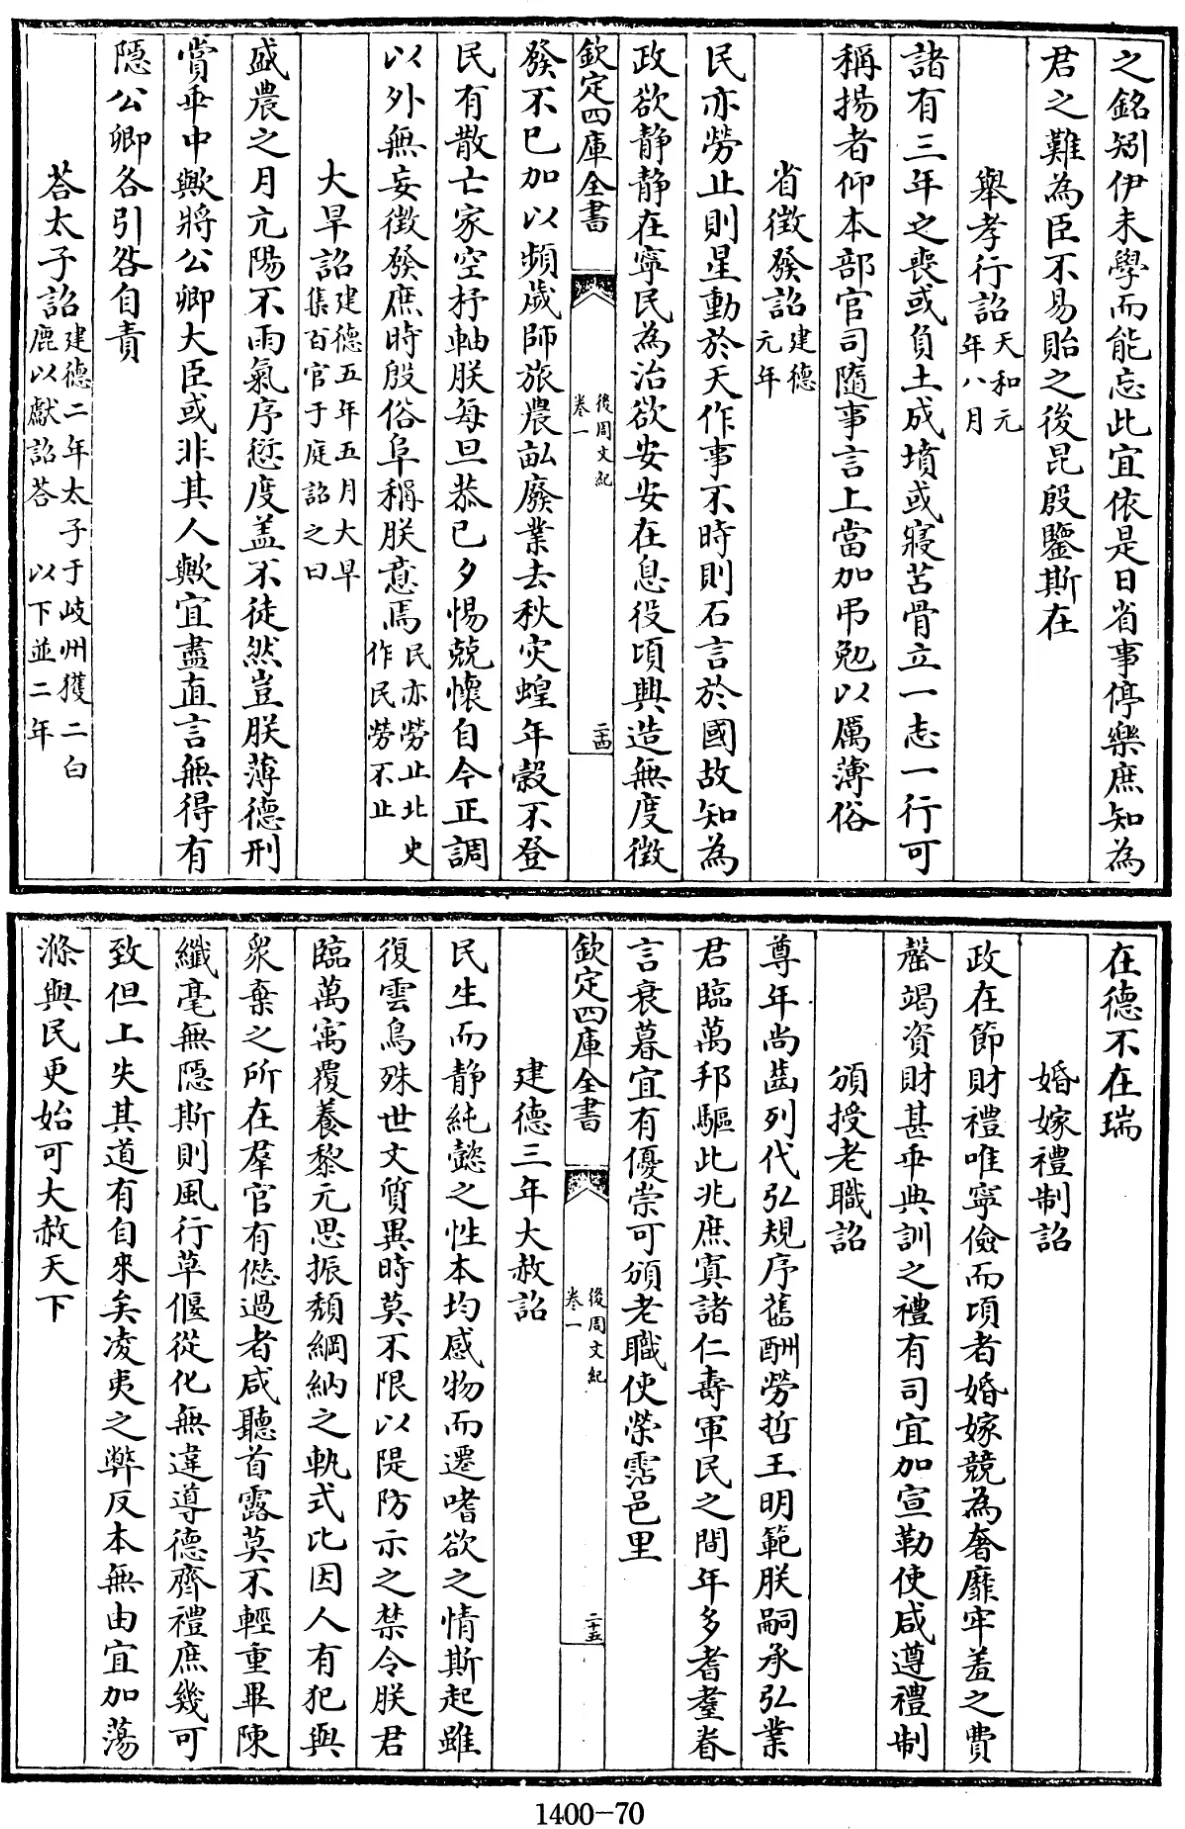 之銘矧伊未學而能忘此宜依是日省事停樂庶知為
君之難為臣不易貽之後昆殷鑒斯在
舉孝行詔天和元年八月
諸有三年之喪或負土成墳或寢苫骨立一志一行可
稱揚者仰本部官司隨事言上當加弔勉以厲薄俗
省徵發詔建德元年
民亦勞止則星動於天作事不時則石言於國故知為
政欲静静在寧民為治欲安安在息役頃興造無度徵
欽定四庫全書
後周文紀
卷一
二十四
發不已加以頻歲師旅農畝廢業去秋灾蝗年穀不登
民有散亡家空杼軸朕每旦恭已夕惕兢懷自今正調
以外無妄徵發庶時殷俗阜稱朕意焉民亦勞止北史作民勞不止
大旱詔建德五年五月大旱集百官于庭詔之曰
盛農之月亢陽不雨氣序愆度盖不徒然豈朕薄德刑
賞乖中歟將公卿大臣或非其人歟宜盡直言無得有
隱公卿各引咎自責
荅太子詔建德二年太子于岐州獲二白鹿以獻詔荅 以下並二年
在德不在瑞
婚嫁禮制詔
政在節財禮唯寧儉而頃者婚嫁競為奢靡牢羞之費
罄竭資財甚乖典訓之禮有司宜加宣勒使咸遵禮制
頒授老職詔
尊年尚齒列代弘規序舊酬勞哲王明範朕嗣承弘業
君臨萬邦驅此兆庶寘諸仁壽軍民之間年多耆耋眷
言衰暮宜有優崇可頒老職使榮霑邑里
欽定四庫全書
後周文紀
卷一
二十五
建德三年大赦詔
民生而静純懿之性本均感物而遷嗜欲之情斯起雖
復雲鳥殊世文質異時莫不限以隄防示之禁令朕君
臨萬寓覆養黎元思振頽綱納之軌式比因人有犯與
衆棄之所在羣官有愆過者咸聽首露莫不輕重畢陳
纖毫無隱斯則風行草偃從化無違導德齊禮庶幾可
致但上失其道有自來矣凌夷之弊反本無由宜加蕩
滌與民更始可大赦天下
1400-70